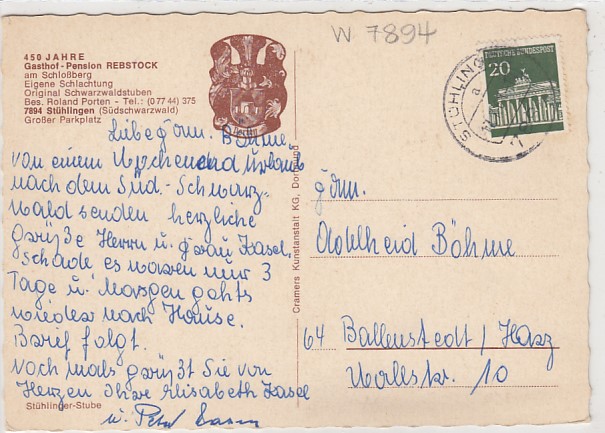 W 7894
450 JAHRE
Gasthof - Pension REBSTOCK
am Schloßberg
Eigene Schlachtung
Original Schwarzwaldstuben
Bes. Roland Porten - Tel.: (0 77 44) 375
7894 Stühlingen (Südschwarzwald)
Großer Parkplatz
DEUTSCHE BUNDESPOST
20
STÜHLING
a
Liebe Fam. Böhme,
von einem Wochenend Urlaub
nach dem Süd.- Schwarz-
wald senden herzliche
Grüße Herrn u. Frau Kasel.
Schade es waren nur 3
Tage u. Morgen gehts
wieder nach Hause.
Brief folgt.
Noch mals grüßt Sie von
Herzen Ihre Elisabeth Kasel
u. Peter
Stühlinger-Stube
Cramers Kunstanstalt KG, Dortmund
Fam.
Adelheid Böhme
64 Ballenstedt / Harz
Wallstr. 10